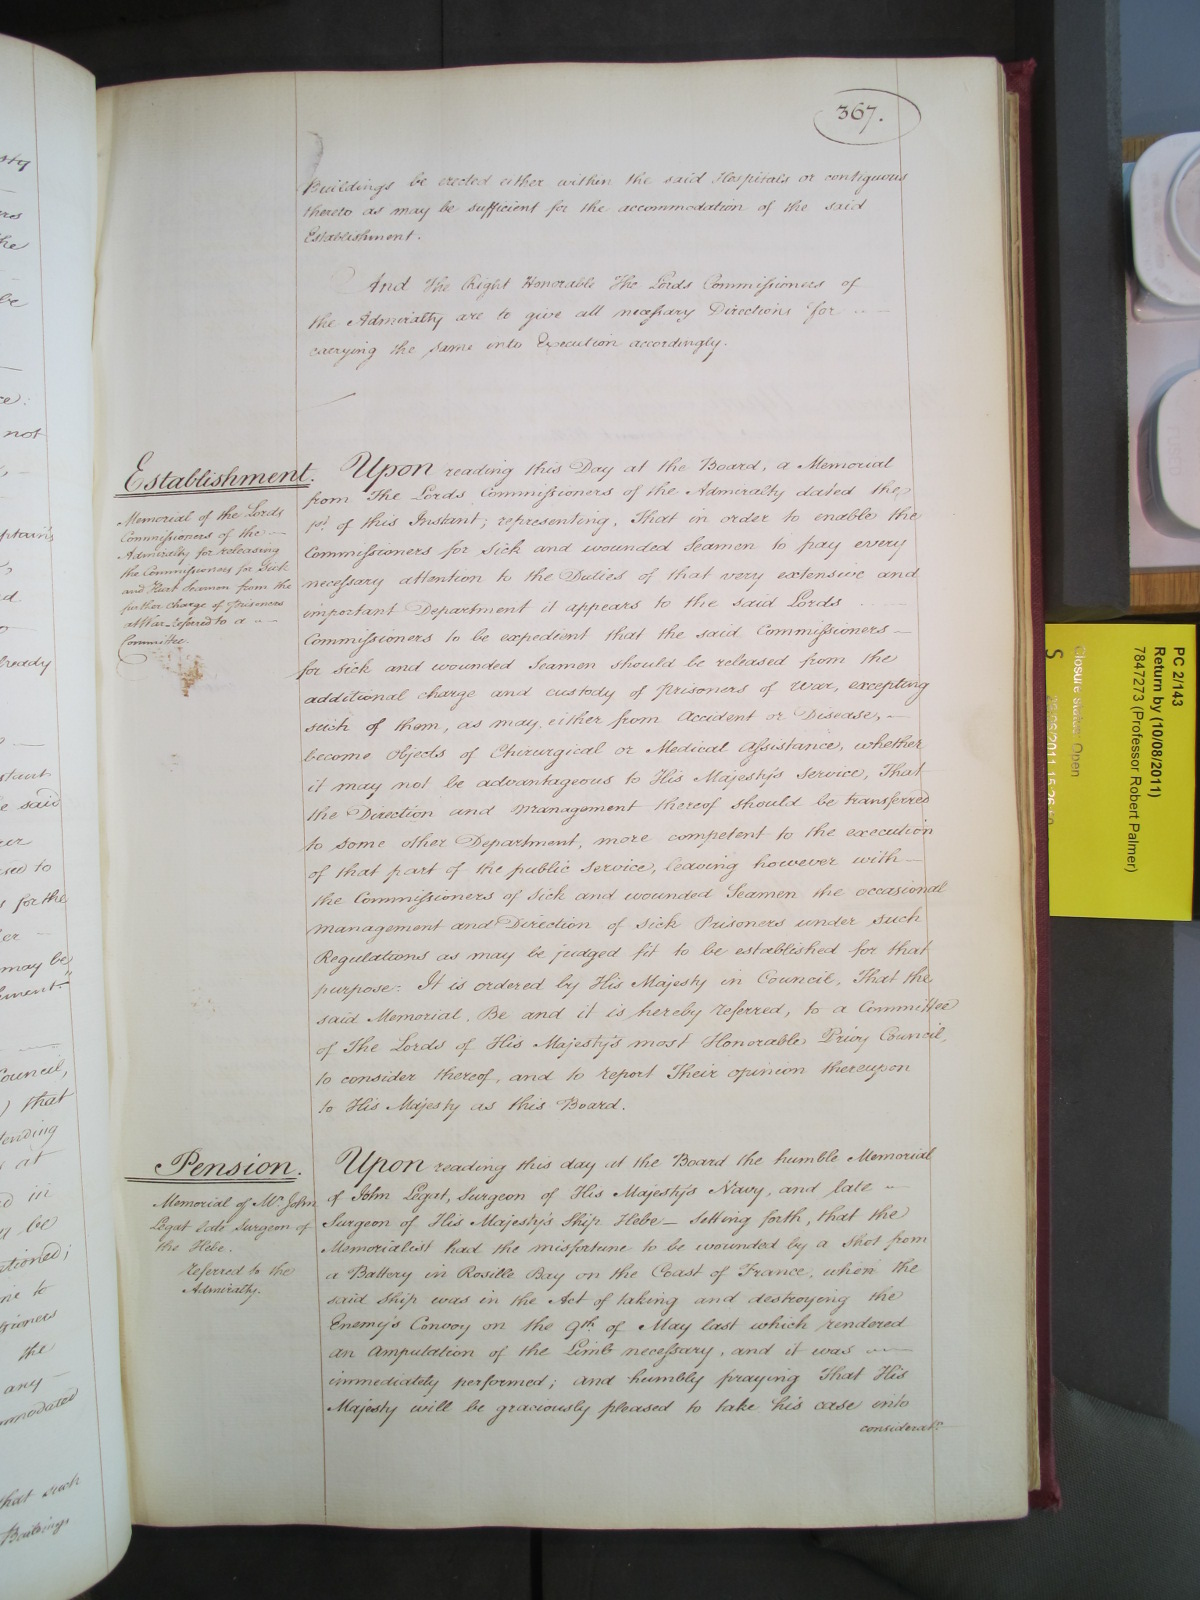 367.
Buildings be erected either within the said Hospitals or contiguous
thereto as may be sufficient for the accommodation of the said
Establishment.
And The Right Honorable The Lords Commissioners of
the Admiralty are to give all necessary Directions for
carrying the same into Execution accordingly.
Establishment.
Memorial of the Lords
Commissioners of the
Admiralty for releasing
the Commissioners for Sick
and Hurt Seamen from the
further charge of Prisoners
at War _ referred to a
Committee.
Upon reading this Day at the Board, a Memorial
from The Lords Commissioners of the Admiralty dated the
1st of this Instant; representing, That in order to enable the
Commissioners for Sick and wounded Seamen to pay every
necessary attention to the Duties of that very extensive and
important Department it appears to the said Lords
Commissioners to be expedient that the said Commissioners
for Sick and wounded Seamen should be released from the
additional charge and custody of Prisoners of War, excepting
such of them, as may either from Accident or Disease,
become Objects of Chirurgical or Medical Assistance, whether
it may not be advantageous to His Majesty's Service, That
the Direction and Management thereof should be transferred
to some other Department, more competent to the execution
of that part of the public Service, leaving however with
the Commissioners of Sick and wounded Seamen the occasional
management and Direction of Sick Prisoners under such
Regulations as may be judged fit to be established for that
purpose: It is ordered by His Majesty in Council, That the
said Memorial, Be and it is hereby referred, to a Committee
of The Lords of His Majesty's most Honorable Privy Council,
to consider thereof, and to report Their opinion thereupon
to His Majesty as this Board.
Pension.
Memorial of Mr. John
Legat late Surgeon of
the Hebe.
referred to the
Admiralty.
Upon reading this day at the Board the humble Memorial
of John Legat, Surgeon of His Majesty's Navy, and late
Surgeon of His Majesty's Ship Hebe _ setting forth, that the
Memorialist had the misfortune to be wounded by a shot from
a Battery in Rosille Bay on the Coast of France, when the
said Ship was in the Act of taking and destroying the
Enemy's Convoy on the 9th of May last which rendered
an Amputation of the Limb necessary, and it was
immediately performed; and humbly praying That His
Majesty will be graciously pleased to take his case into
considerat.n
PC 2/143
Return by (10/08/2011)
7847273 (Professor Robert Palmer)
Closure status: Open
S